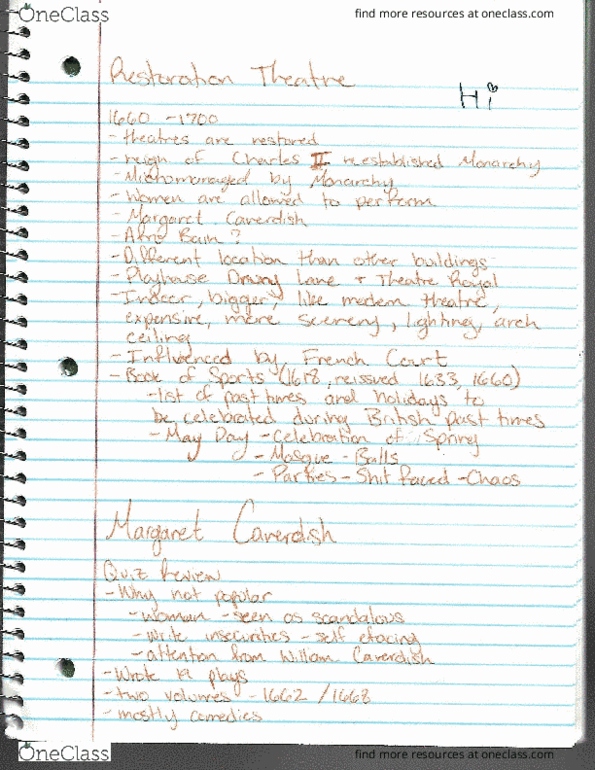 OneClass
find more resources at oneclass.com
Restoration Theatre
Hi
1660 -1700
- theatres are restored
- reign of Charles II reestablished Monarchy
- Micromanaged by Monarchy
- Women are allowed to perform
- Margaret Caverdish
- Afra Bain ?
- Different location than other buildings
- Playhouse Drury Lane + Theatre Royal
- Indoor, bigger, like modern theatre,
expensive, more scenery, lighting, arch
ceiling
- Influenced by French Court
- Book of Sports (1618, reissued 1633, 1660)
- list of past times and holidays to
be celebrated during British past times
- May Day - celebration of Spring
- Masque - Balls
- Parties - Shit faced - Chaos
Margaret Caverdish
Quiz Review
- Why not popular
- Woman - seen as scandalous
- write insecurities - self efacing
- attention from William Caverdish
- Wrote 19 plays
- two volumes - 1662 / 1668
- mostly comedies
OneClass
find more resources at oneclass.com